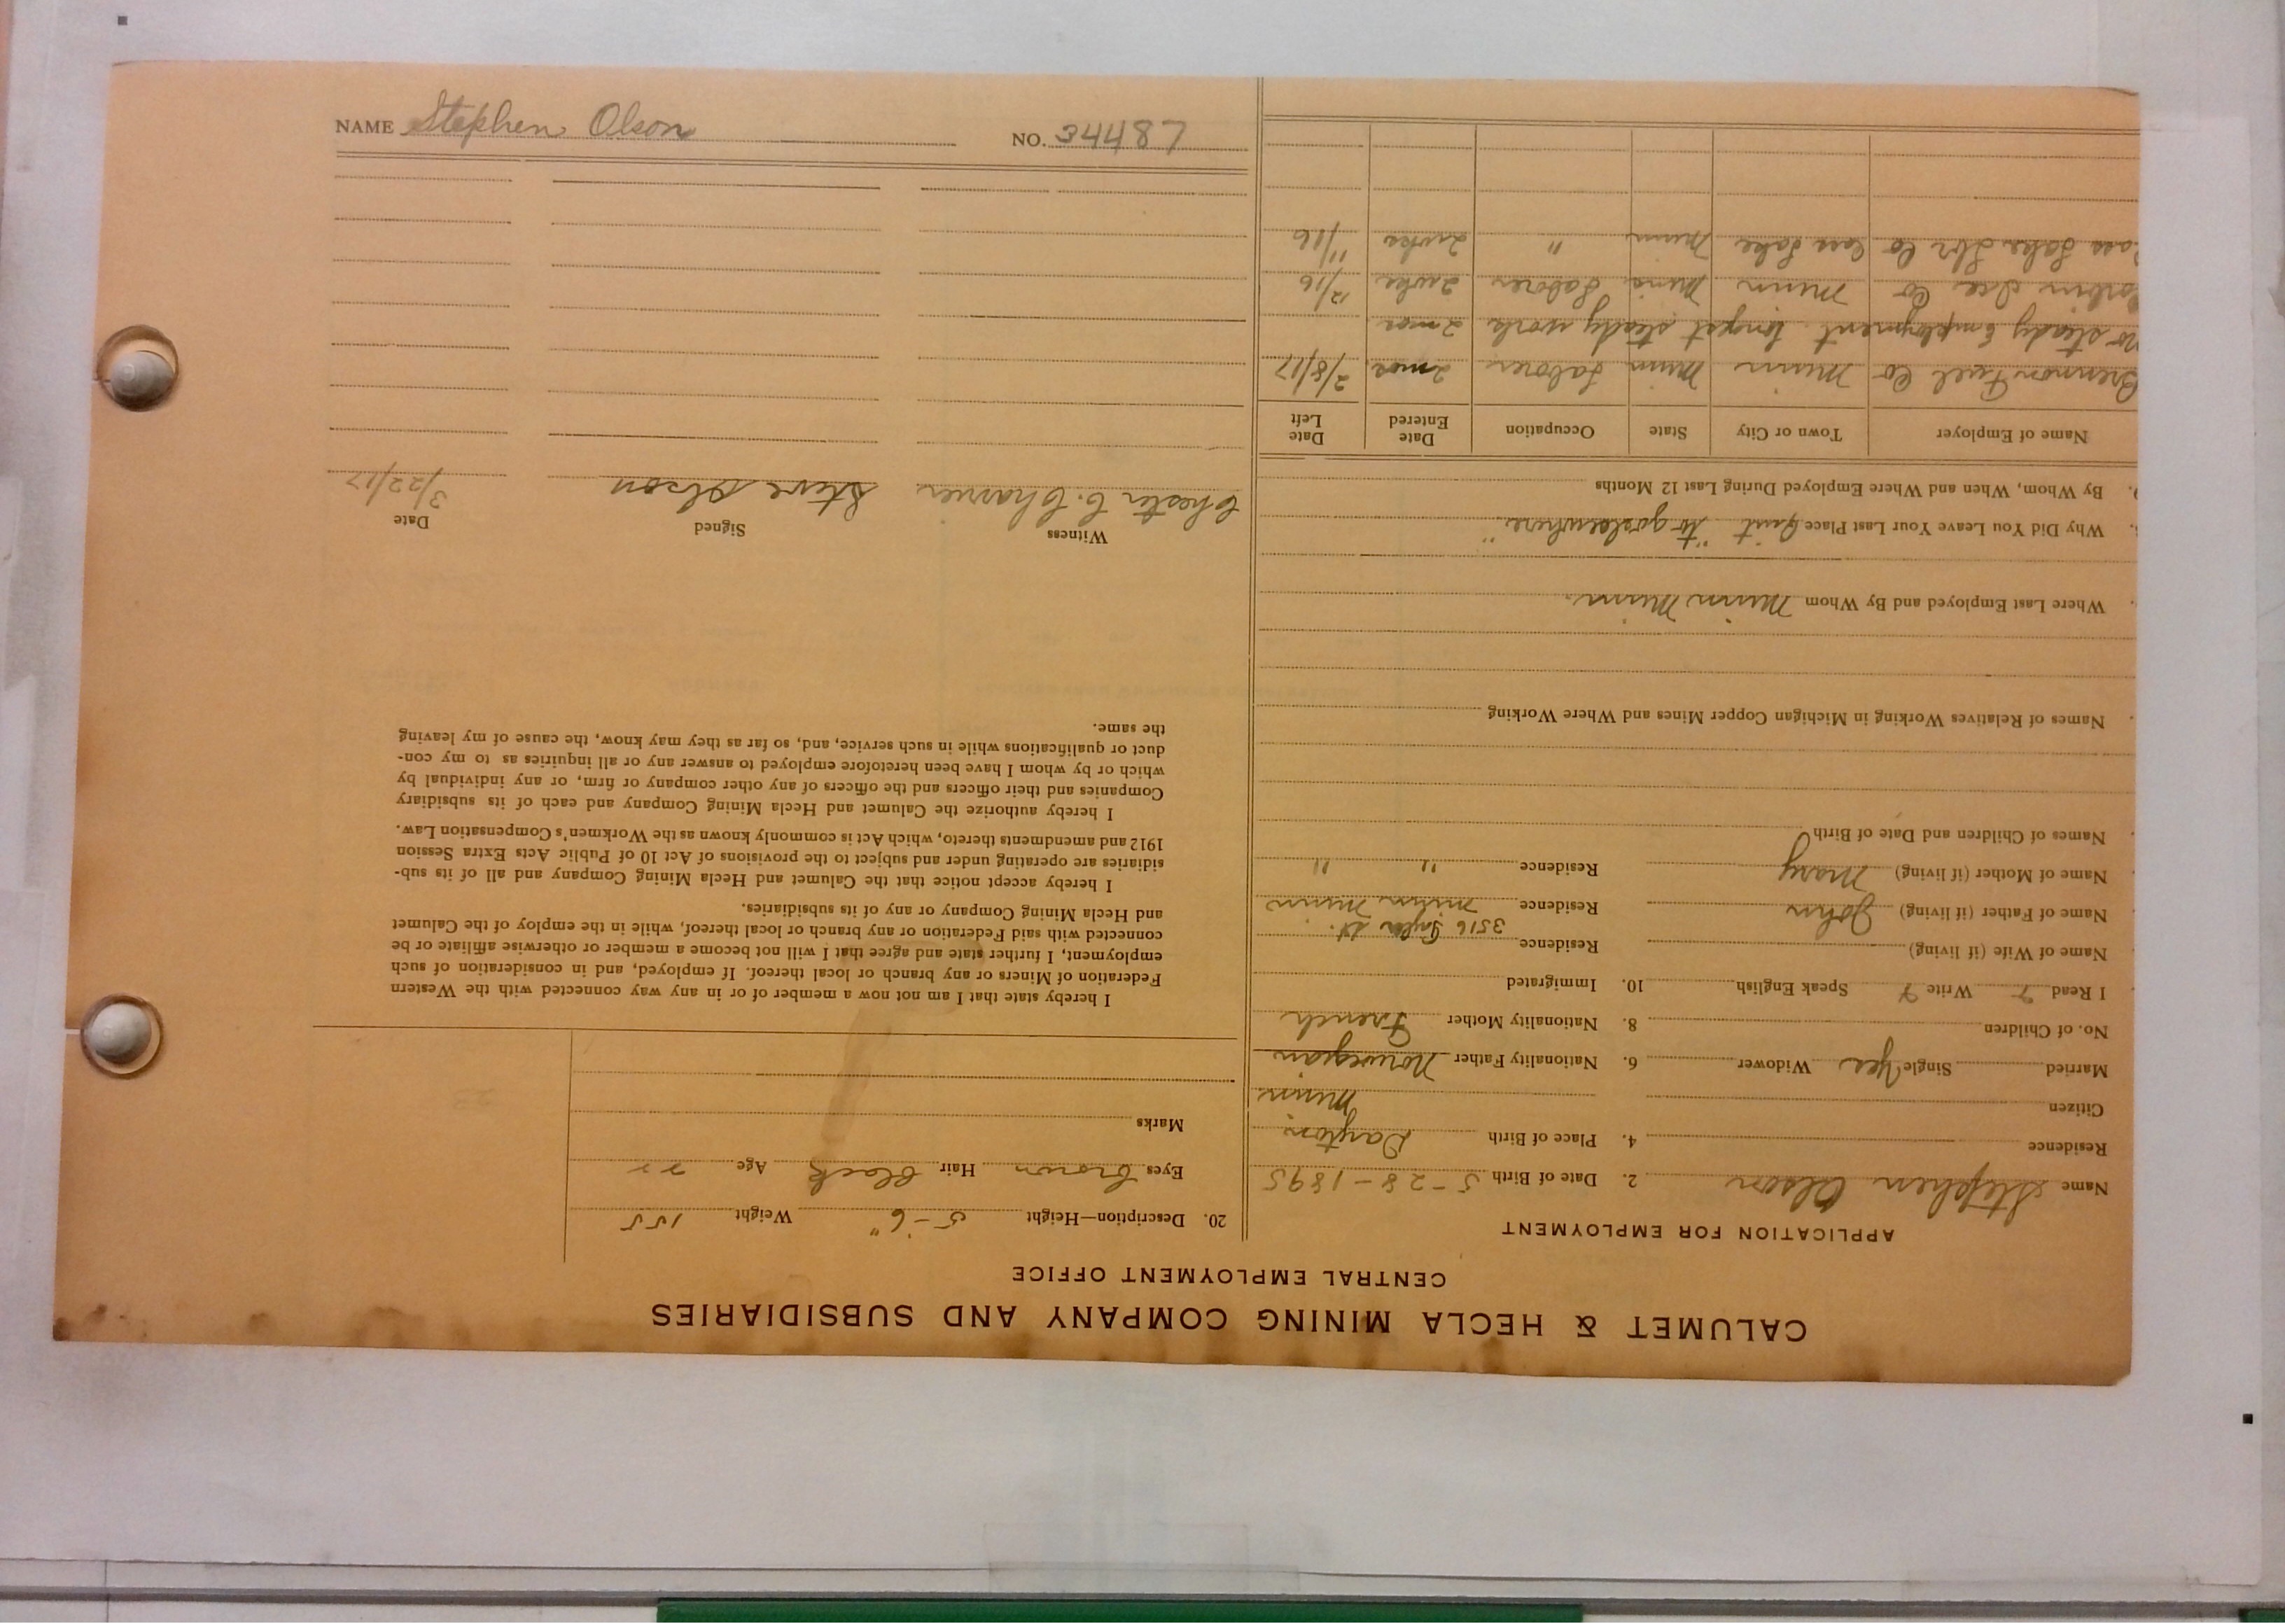 NAME Stephen Olson NO. 34487
CALUMET & HECLA MINING COMPANY AND SUBSIDIARIES
CENTRAL EMPLOYMENT OFFICE
APPLICATION FOR EMPLOYMENT
Name Stephen Olson 2. Date of Birth 5-28-1895
Residence 4. Place of Birth Dayton
Citizen Minn
Married Single Yes Widower 6. Nationality Father Norwegian
No. of Children 8. Nationality Mother French
I Read Write Speak English 10. Immigrated
Name of Wife (if living) Residence
3516 St.
Name of Father (if living) John Residence Minn Minn
Name of Mother (if living) Mary Residence " "
Names of Children and Date of Birth
Names of Relatives Working in Michigan Copper Mines and Where Working
Where Last Employed and By Whom Minn Minn.
Why Did You Leave Your Last Place Quit "to go elsewhere"
By Whom, When and Where Employed During Last 12 Months
Name of Employer Town or City State Occupation Date Entered Date Left
Brennon Fuel Co Minn Minn Laborer 2 mos. 2/8/17
No steady Employment longest steady work 2 mos.
Ice Co Minn Minn Laborer 2 wks 12/16
Cass Lake Lbr Co Cass Lake Minn " 2 wks 11/16
20. Description—Height 5-6" Weight 155
Eyes brown Hair black Age 22
Marks
I hereby state that I am not now a member of or in any way connected with the Western
Federation of Miners or any branch or local thereof. If employed, and in consideration of such
employment, I further state and agree that I will not become a member or otherwise affiliate or be
connected with said Federation or any branch or local thereof, while in the employ of the Calumet
and Hecla Mining Company or any of its subsidiaries.
I hereby accept notice that the Calumet and Hecla Mining Company and all of its sub-
sidiaries are operating under and subject to the provisions of Act 10 of Public Acts Extra Session
1912 and amendments thereto, which Act is commonly known as the Workmen's Compensation Law.
I hereby authorize the Calumet and Hecla Mining Company and each of its subsidiary
Companies and their officers and the officers of any other company or firm, or any individual by
which or by whom I have been heretofore employed to answer any or all inquiries as to my con-
duct or qualifications while in such service, and, so far as they may know, the cause of my leaving
the same.
Witness Signed Date
Chester C. Steve Olson 3/22/17